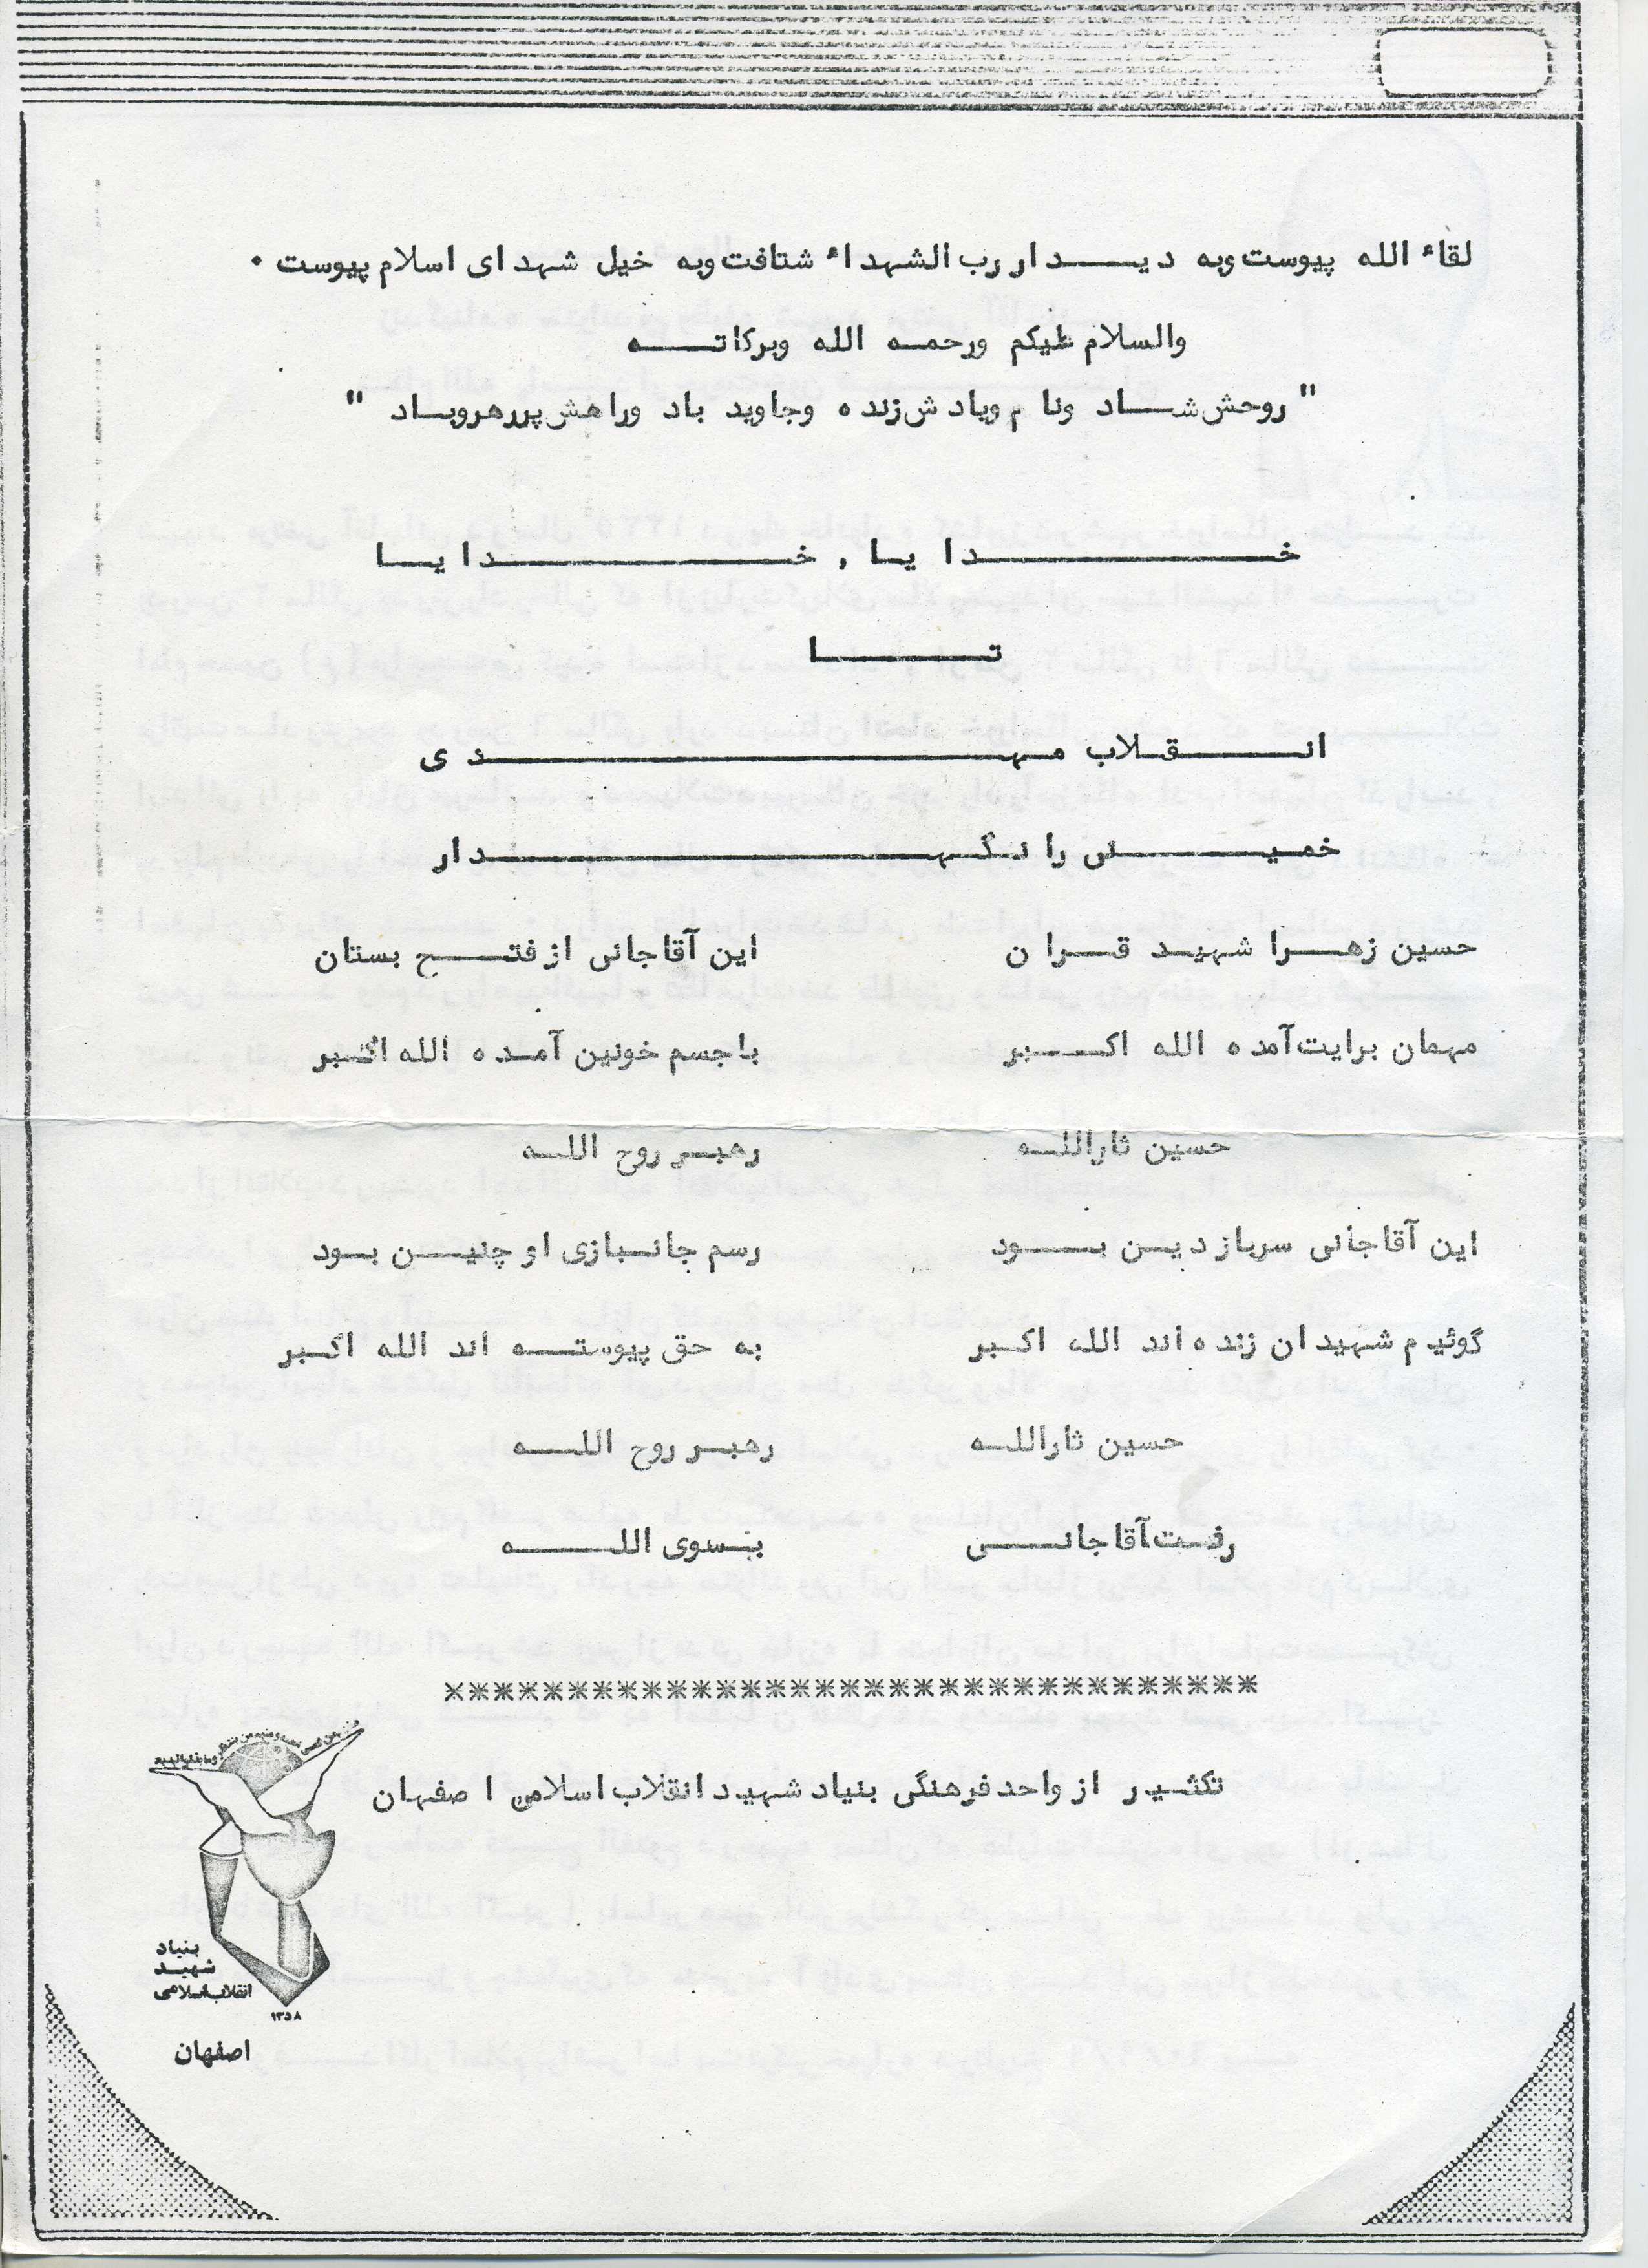 لقاء الله پیوست وبه دیدار رب الشهداء شتافت وبه خیل شهدای اسلام پیوست .
والسلام علیکم ورحمه الله وبرکاته
" روحش شاد ونام ویادش زنده وجاوید باد وراهش پررهروباد "
خدایا , خدایا
تا
انقلاب مهدی
خمینی را نگهدار
حسین زهرا شهید قران این آقاجانی از فتح بستان
مهمان برایت آمده الله اکبر با جسم خونین آمده الله اکبر
حسین ثارالله رهبر روح الله
این آقاجانی سرباز دین بود رسم جانبازی او چنین بود
گوئیم شهیدان زنده اند الله اکبر به حق پیوسته اند الله اکبر
حسین ثارالله رهبر روح الله
رفت آقاجانی بسوی الله
*********************************
تکثیر از واحد فرهنگی بنیاد شهید انقلاب اسلامی اصفهان
بنیاد
شهید
انقلاب اسلامی
۱۳۵۸
اصفهان